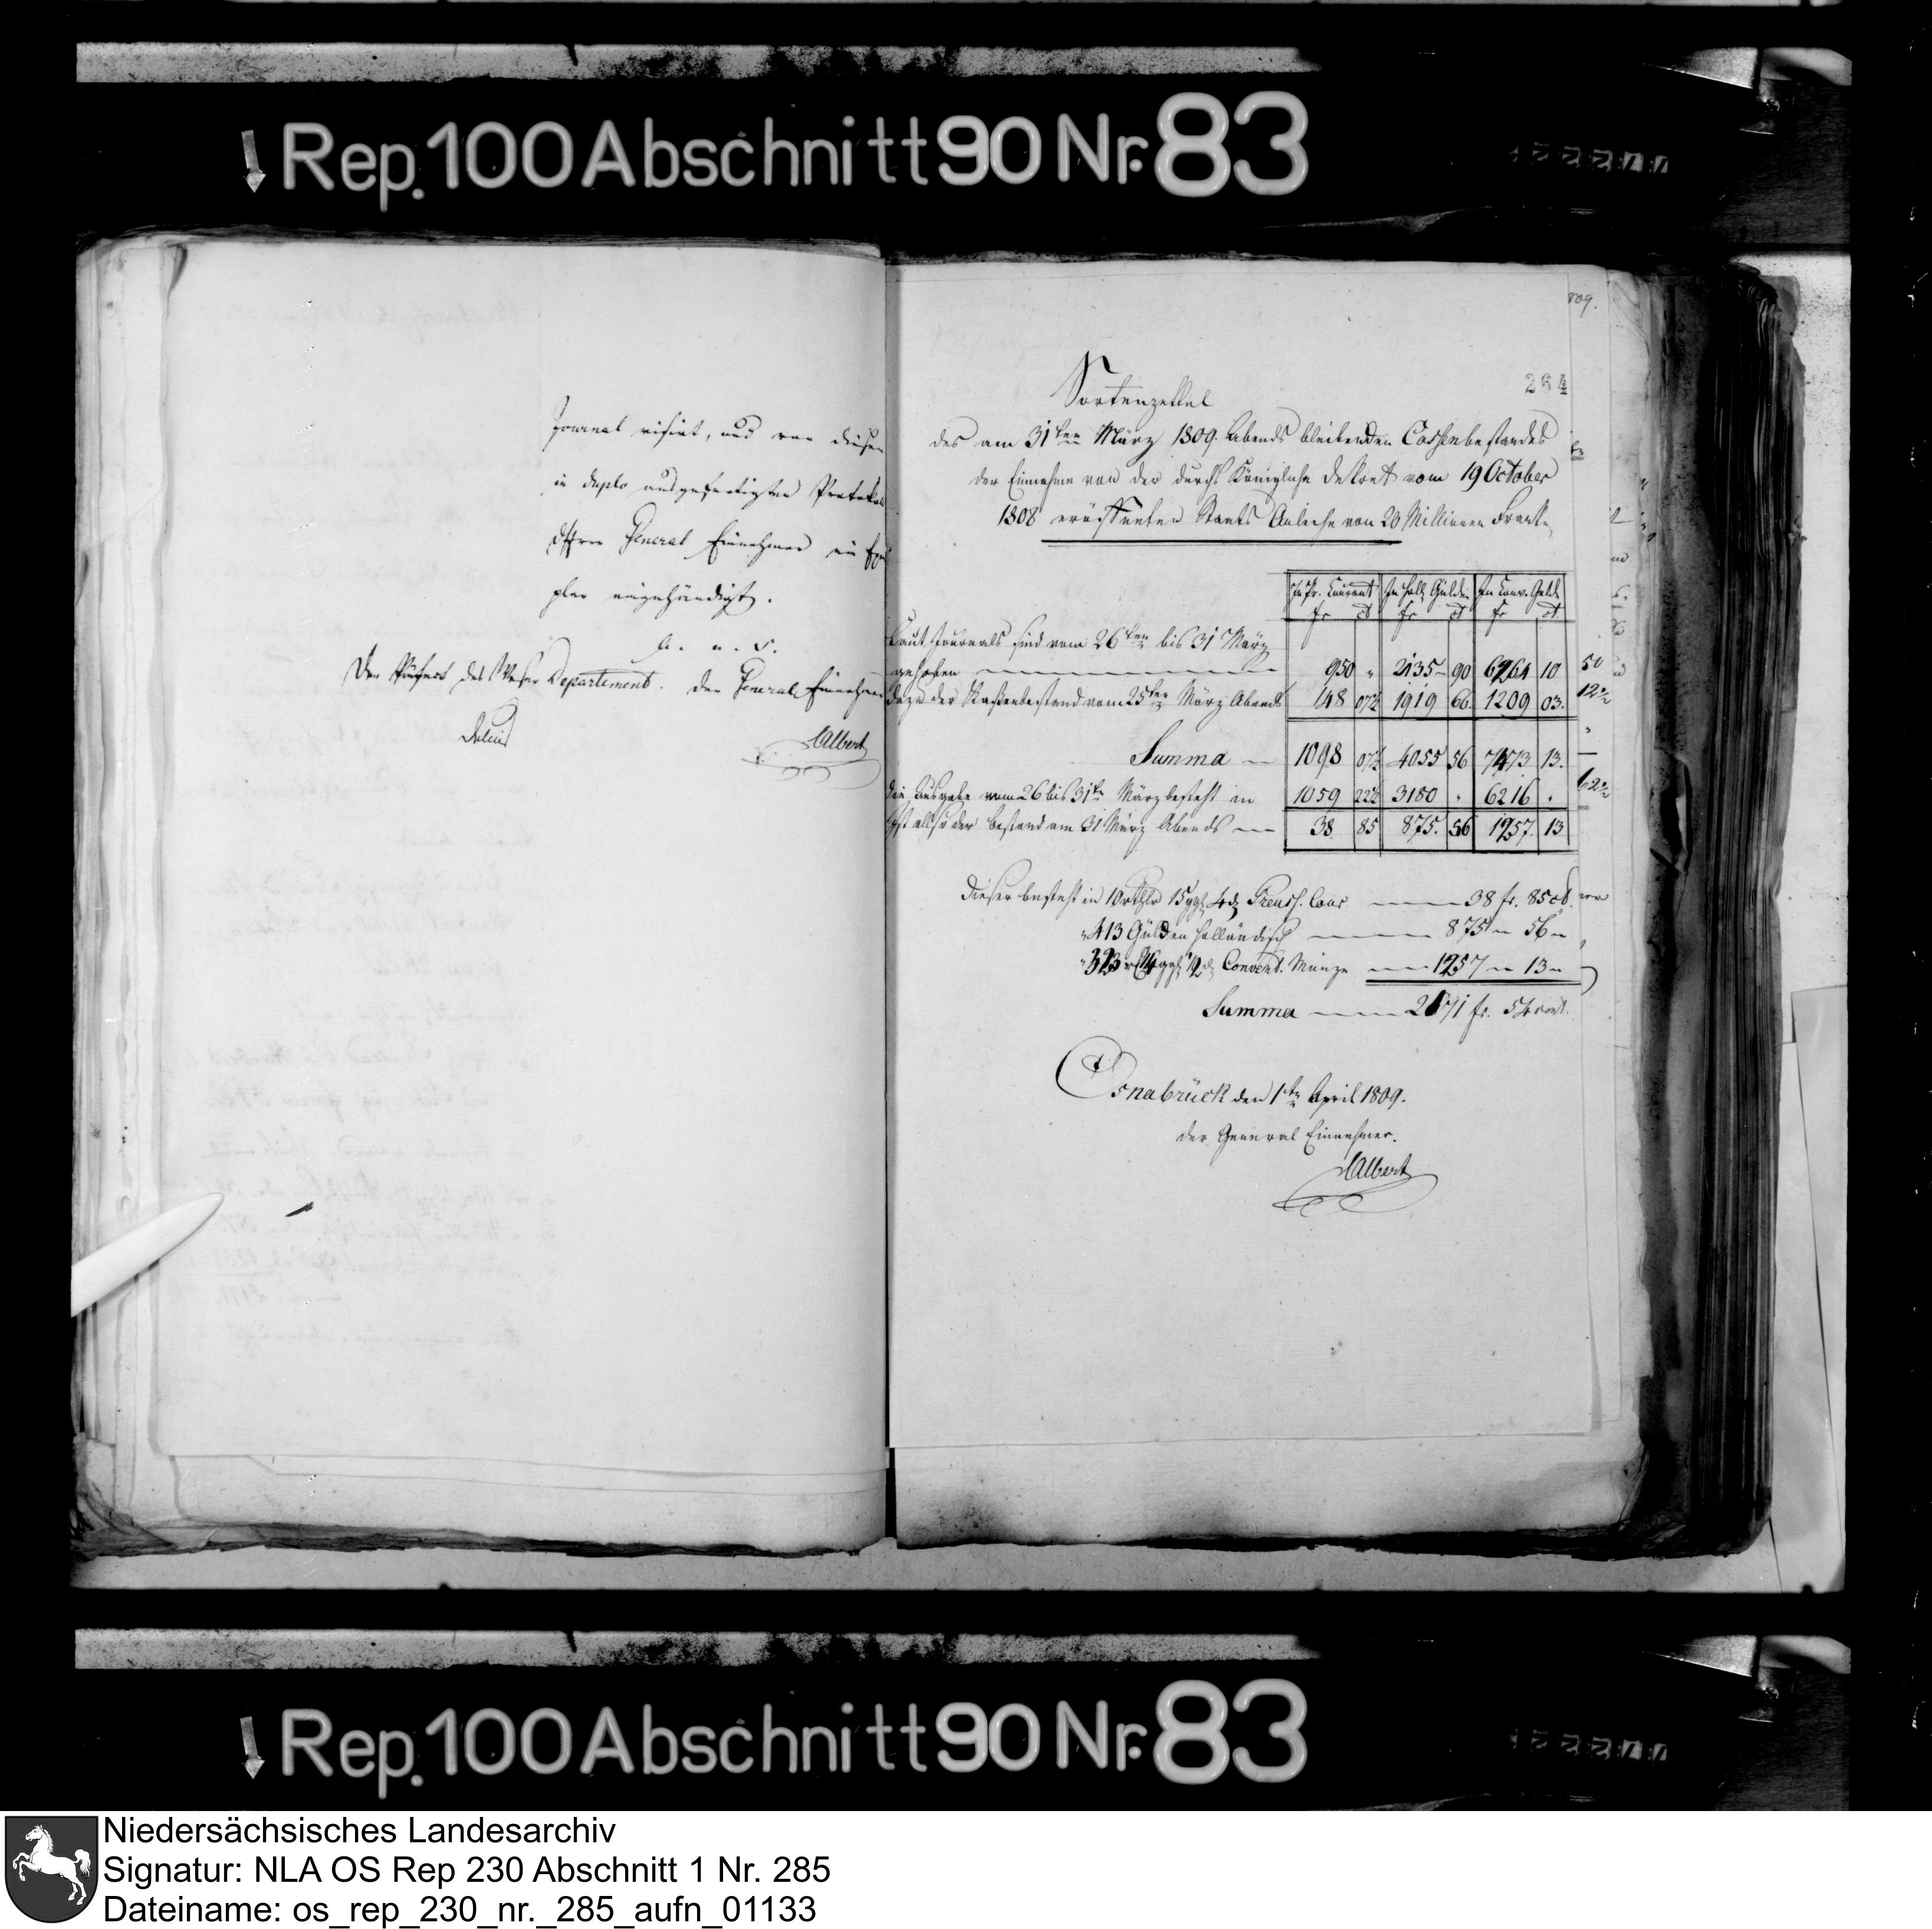 Rep. 100 Abschnitt 90 Nr. 83
Journal visirt, und von diesem
in duplo ausgefertigten Protokol
dHrrn General Einnehmer ein Ex
plar eingehändigt.
A. u. S.
Der Präfect des Weser Departement. der General Einnehmer
Delius
Albert
809.
264
Sortenzettel
des am 31ten März 1809. Abends bleibenden Cassenbestandes
der Einnahme von der durchs Königliche Dekret vom 19 October
1808 eröffneten Staats Anleihe von 20 Millionen Frank.
In Pr. Courant In holl. Gulden In Conv. Gelde
fr ct fr ct fr ct
Laut Journals sind vom 26ten bis 31 März
gehoben 950 " 2135 90 6264 10
dazu der Kassenbestand vom 25ten März Abends 148 07½ 1919 66. 1209 03.
Summa 1098 07½ 4055 56 7473 13.
die Ausgabe vom 26 bis 31ten März besteht in 1059 22½ 3180 " 6216 "
Ist also der bestand am 31 März Abends 38 85 875. 56 1257. 13
Dieser besteht in 10 rthlr 15 ggl 4 d Preuss. Cour 38 fr. 85 ct.
" 413 Gulden holländisch 875 " 56 "
Convent. Münze 1257 " 13 "
Summa 2171 fr. 54 cent.
Osnabrück den 1ten April 1809.
der General Einnehmer.
Albert
50
12½
62½
Rep. 100 Abschnitt 90 Nr. 83
Niedersächsisches Landesarchiv
Signatur: NLA OS Rep 230 Abschnitt 1 Nr. 285
Dateiname: os_rep_230_nr._285_aufn_01133